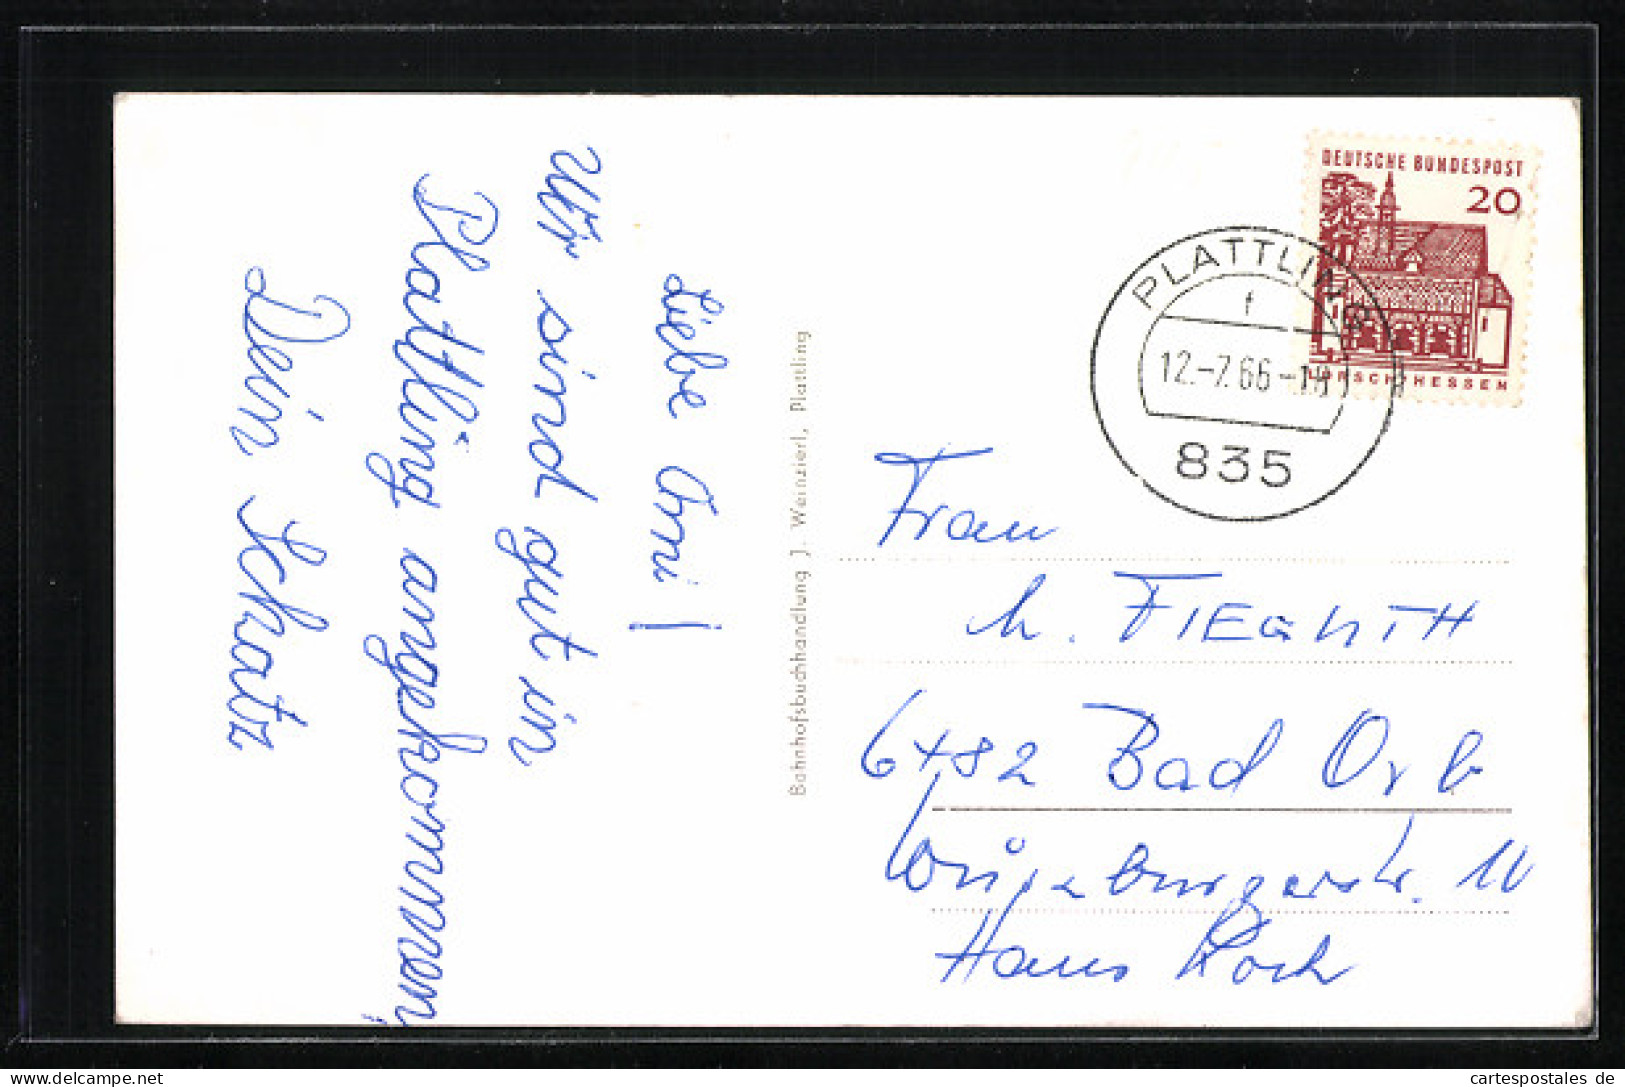 Liebe Omi!
Wir sind gut in
Plattling angekommen,
Dein Schatz
Bahnhofsbuchhandlung J. Weinzierl, Plattling
DEUTSCHE BUNDESPOST
20
LORSCH/HESSEN
PLATTLING
f
12.-7.66-18
835
Frau
M. FIEGUTH
6482 Bad Orb
Würzburgerstr. 10
Haus Koch
cartespostales de